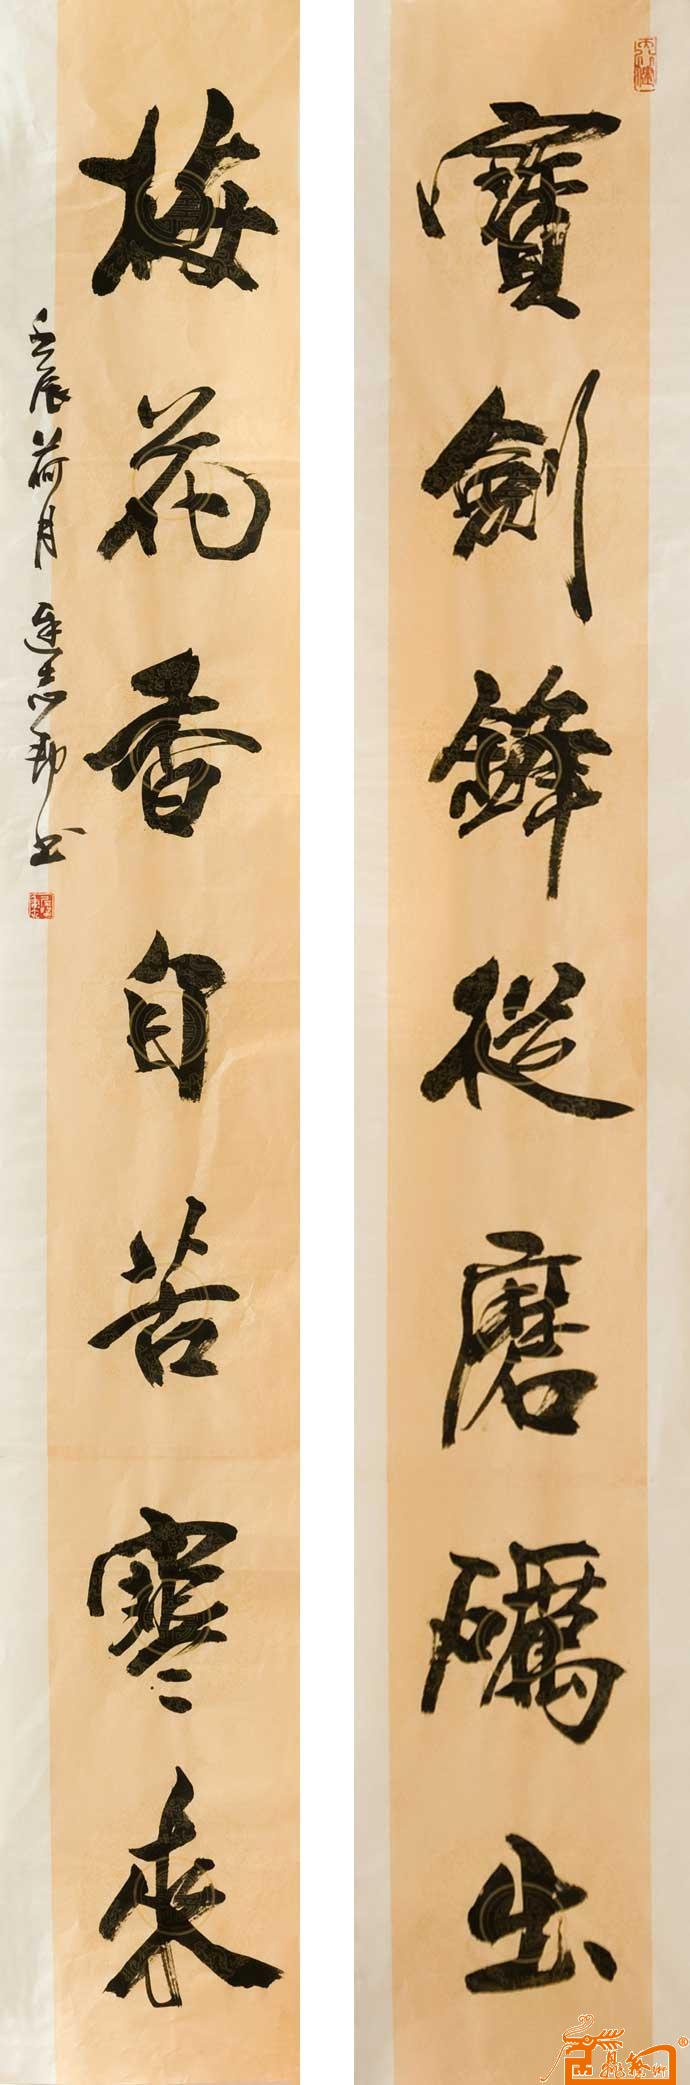 寶劍鋒從磨礪出
梅花香自苦寒來
壬辰荷月